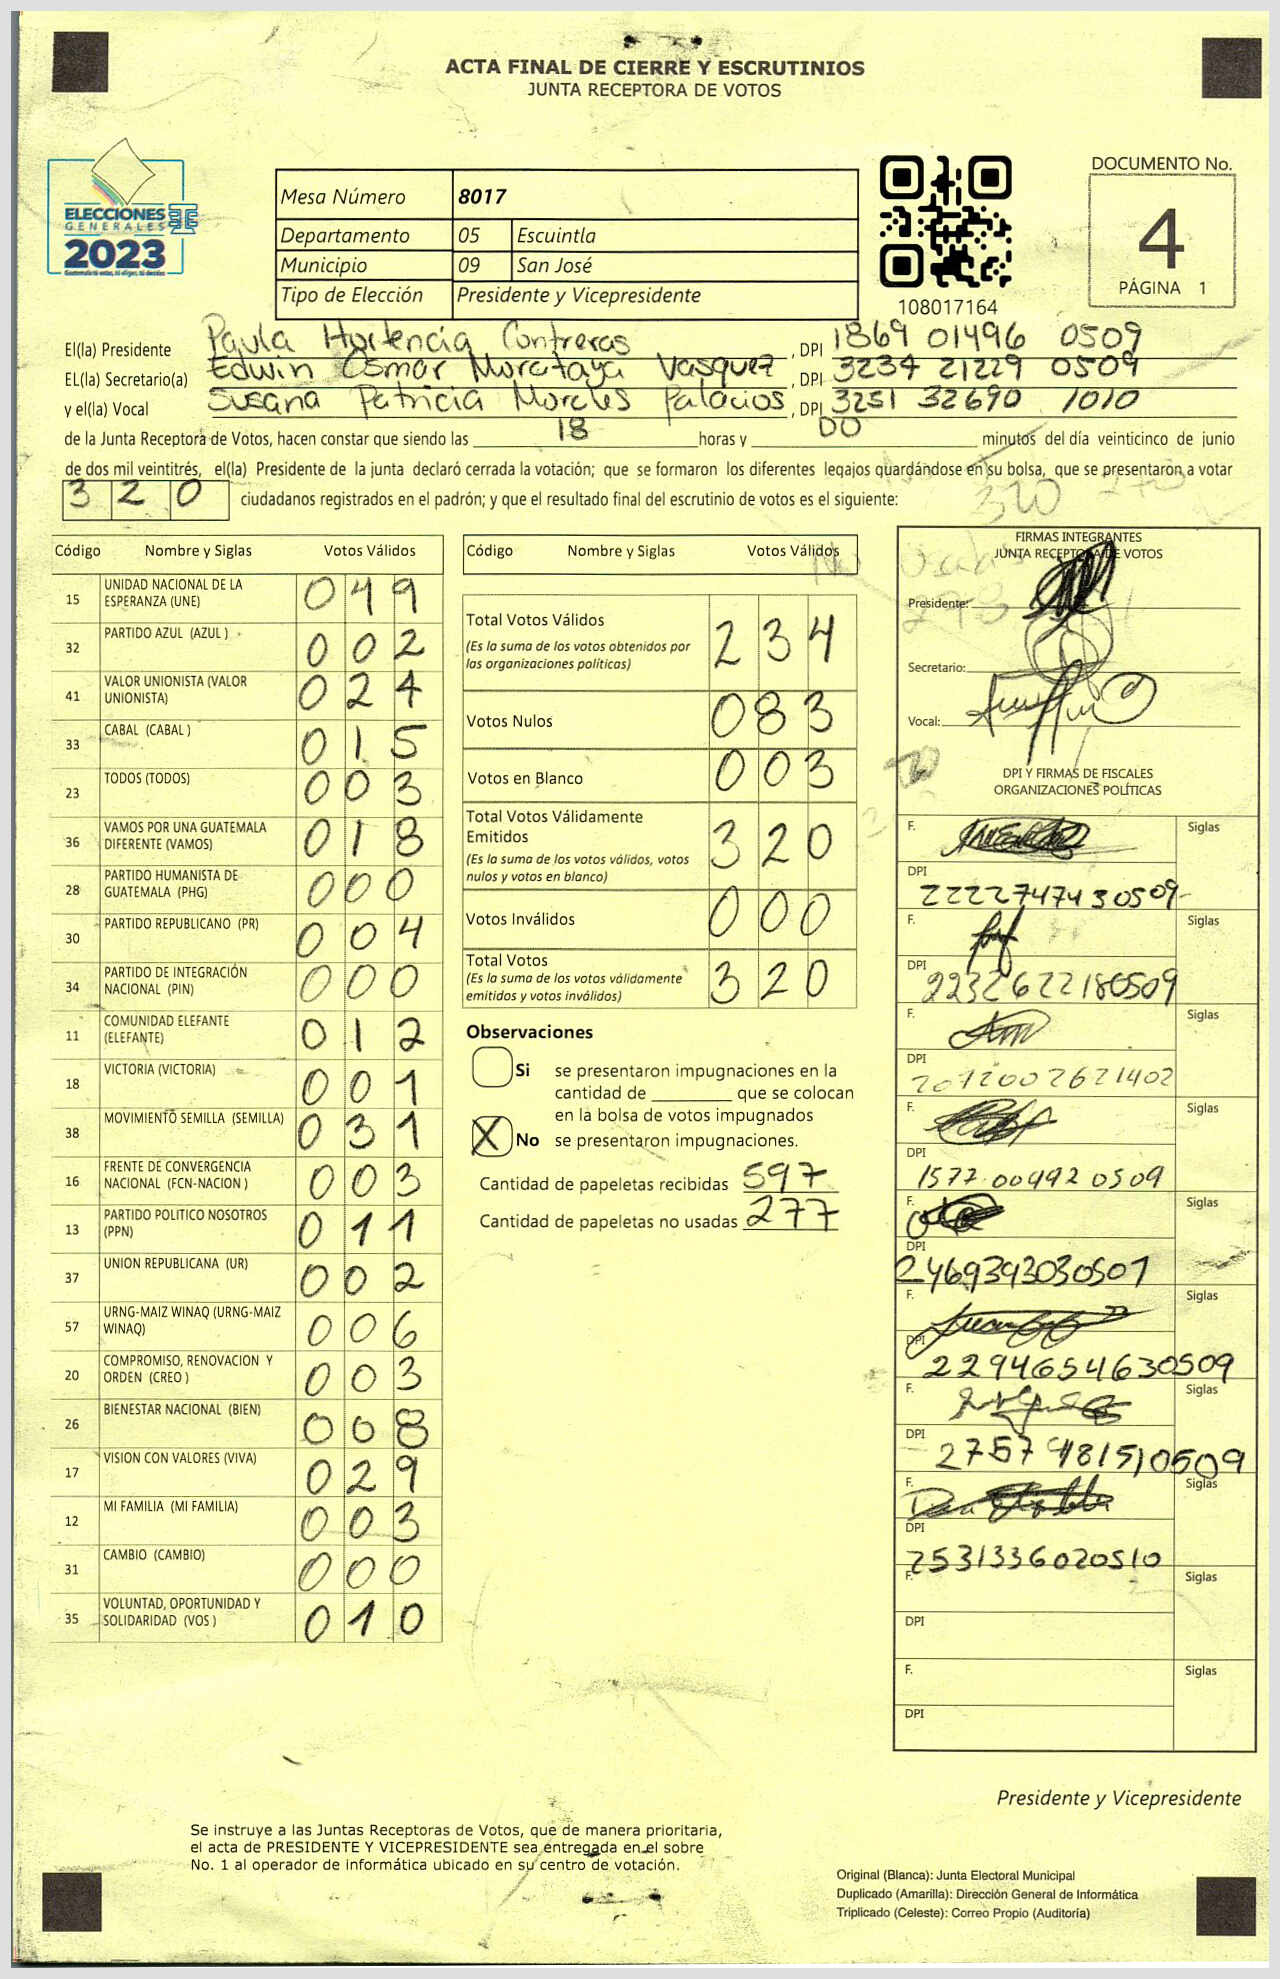 ACTA FINAL DE CIERRE Y ESCRUTINIOS
JUNTA RECEPTORA DE VOTOS
ELECCIONES
GENERALES
2023
Mesa Número 8017
Departamento 05 Escuintla
Municipio 09 San José
Tipo de Elección Presidente y Vicepresidente
108017164
DOCUMENTO No.
4
PÁGINA 1
El(la) Presidente Paula Hortencia Contreras, DPI 1869 01496 0509
EL(la) Secretario(a) Edwin Osmar Morataya Vasquez, DPI 3234 21229 0509
y el(la) Vocal Susana Patricia Morales Palacios, DPI 3251 32690 1010
de la Junta Receptora de Votos, hacen constar que siendo las 18 horas y 00 minutos del día veinticinco de junio
de dos mil veintitrés, el(la) Presidente de la junta declaró cerrada la votación; que se formaron los diferentes legajos guardándose en su bolsa, que se presentaron a votar
320 ciudadanos registrados en el padrón; y que el resultado final del escrutinio de votos es el siguiente:
320
Código Nombre y Siglas Votos Válidos
15 UNIDAD NACIONAL DE LA ESPERANZA (UNE) 049
32 PARTIDO AZUL (AZUL ) 002
41 VALOR UNIONISTA (VALOR UNIONISTA) 024
33 CABAL (CABAL ) 015
23 TODOS (TODOS) 003
36 VAMOS POR UNA GUATEMALA DIFERENTE (VAMOS) 018
28 PARTIDO HUMANISTA DE GUATEMALA (PHG) 000
30 PARTIDO REPUBLICANO (PR) 004
34 PARTIDO DE INTEGRACIÓN NACIONAL (PIN) 000
11 COMUNIDAD ELEFANTE (ELEFANTE) 012
18 VICTORIA (VICTORIA) 001
38 MOVIMIENTO SEMILLA (SEMILLA) 031
16 FRENTE DE CONVERGENCIA NACIONAL (FCN-NACION ) 003
13 PARTIDO POLITICO NOSOTROS (PPN) 011
37 UNION REPUBLICANA (UR) 002
57 URNG-MAIZ WINAQ (URNG-MAIZ WINAQ) 006
20 COMPROMISO, RENOVACION Y ORDEN (CREO ) 003
26 BIENESTAR NACIONAL (BIEN) 008
17 VISION CON VALORES (VIVA) 029
12 MI FAMILIA (MI FAMILIA) 003
31 CAMBIO (CAMBIO) 000
35 VOLUNTAD, OPORTUNIDAD Y SOLIDARIDAD (VOS ) 010
Código Nombre y Siglas Votos Válidos
Total Votos Válidos 234
(Es la suma de los votos obtenidos por
las organizaciones políticas)
Votos Nulos 083
Votos en Blanco 003
Total Votos Válidamente
Emitidos 320
(Es la suma de los votos válidos, votos
nulos y votos en blanco)
Votos Inválidos 000
Total Votos 320
(Es la suma de los votos válidamente
emitidos y votos inválidos)
Observaciones
Si se presentaron impugnaciones en la
cantidad de ________ que se colocan
en la bolsa de votos impugnados
X No se presentaron impugnaciones.
Cantidad de papeletas recibidas 597
Cantidad de papeletas no usadas 277
FIRMAS INTEGRANTES
JUNTA RECEPTORA DE VOTOS
Presidente:
Secretario:
Vocal:
DPI Y FIRMAS DE FISCALES
ORGANIZACIONES POLÍTICAS
F. Siglas
DPI 2222747430509
F. Siglas
DPI 2232622180509
F. Siglas
DPI 2012002621402
F. Siglas
DPI 1577 00992 0509
F.
DPI 2469393030501
F. Siglas
DPI 2294654630509
F. Siglas
DPI 2757981510509
F. Siglas
DPI 2531336020510
F. Siglas
DPI
F. Siglas
DPI
Presidente y Vicepresidente
Se instruye a las Juntas Receptoras de Votos, que de manera prioritaria,
el acta de PRESIDENTE Y VICEPRESIDENTE sea entregada en el sobre
No. 1 al operador de informática ubicado en su centro de votación.
Original (Blanca): Junta Electoral Municipal
Duplicado (Amarilla): Dirección General de Informática
Triplicado (Celeste): Correo Propio (Auditoría)